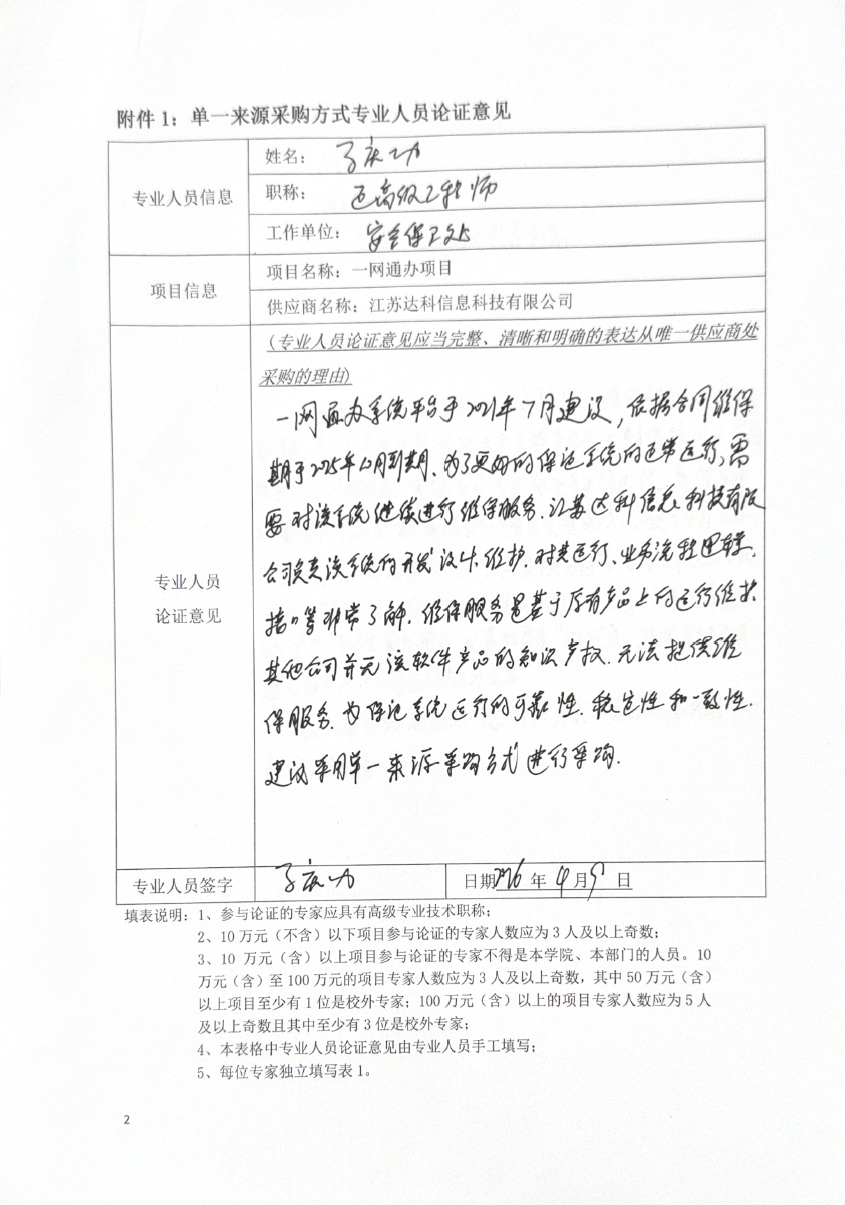 附件1：单一来源采购方式专业人员论证意见
专业人员信息
姓名：
职称： 正高级工程师
工作单位： 安全保卫处
项目信息
项目名称：一网通办项目
供应商名称：江苏达科信息科技有限公司
专业人员
论证意见
(专业人员论证意见应当完整、清晰和明确的表达从唯一供应商处
采购的理由)
一网通办系统平台于2021年7月建设，依据合同维保
期于2025年12月到期。为了更好的保证系统的正常运行，需
要对该系统继续进行维保服务．江苏达科信息科技有限
公司负责该系统的开发设计、维护．对其运行、业务流程逻辑、
接口等非常了解．维保服务是基于原有产品上的运行维护
其他公司并无该软件产品的知识产权．无法提供维
保服务．为保证系统运行的可靠性．稳定性和一致性．
建议采用单一来源采购方式进行采购．
专业人员签字
日期2026年4月9日
填表说明：1、参与论证的专家应具有高级专业技术职称；
2、10万元（不含）以下项目参与论证的专家人数应为3人及以上奇数；
3、10 万元（含）以上项目参与论证的专家不得是本学院、本部门的人员。10
万元（含）至100万元的项目专家人数应为3人及以上奇数，其中50万元（含）
以上项目至少有1位是校外专家；100万元（含）以上的项目专家人数应为5人
及以上奇数且其中至少有3位是校外专家；
4、本表格中专业人员论证意见由专业人员手工填写；
5、每位专家独立填写表1。
2